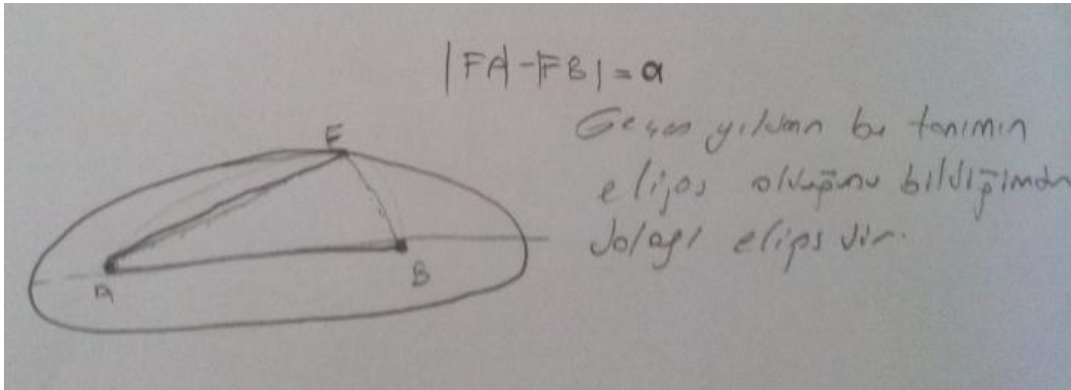 |FA|-|FB| = a
Geçen yıldan bu tanımın
elips olduğunu bildiğimden
dolayı elipsdir.
F
A
B